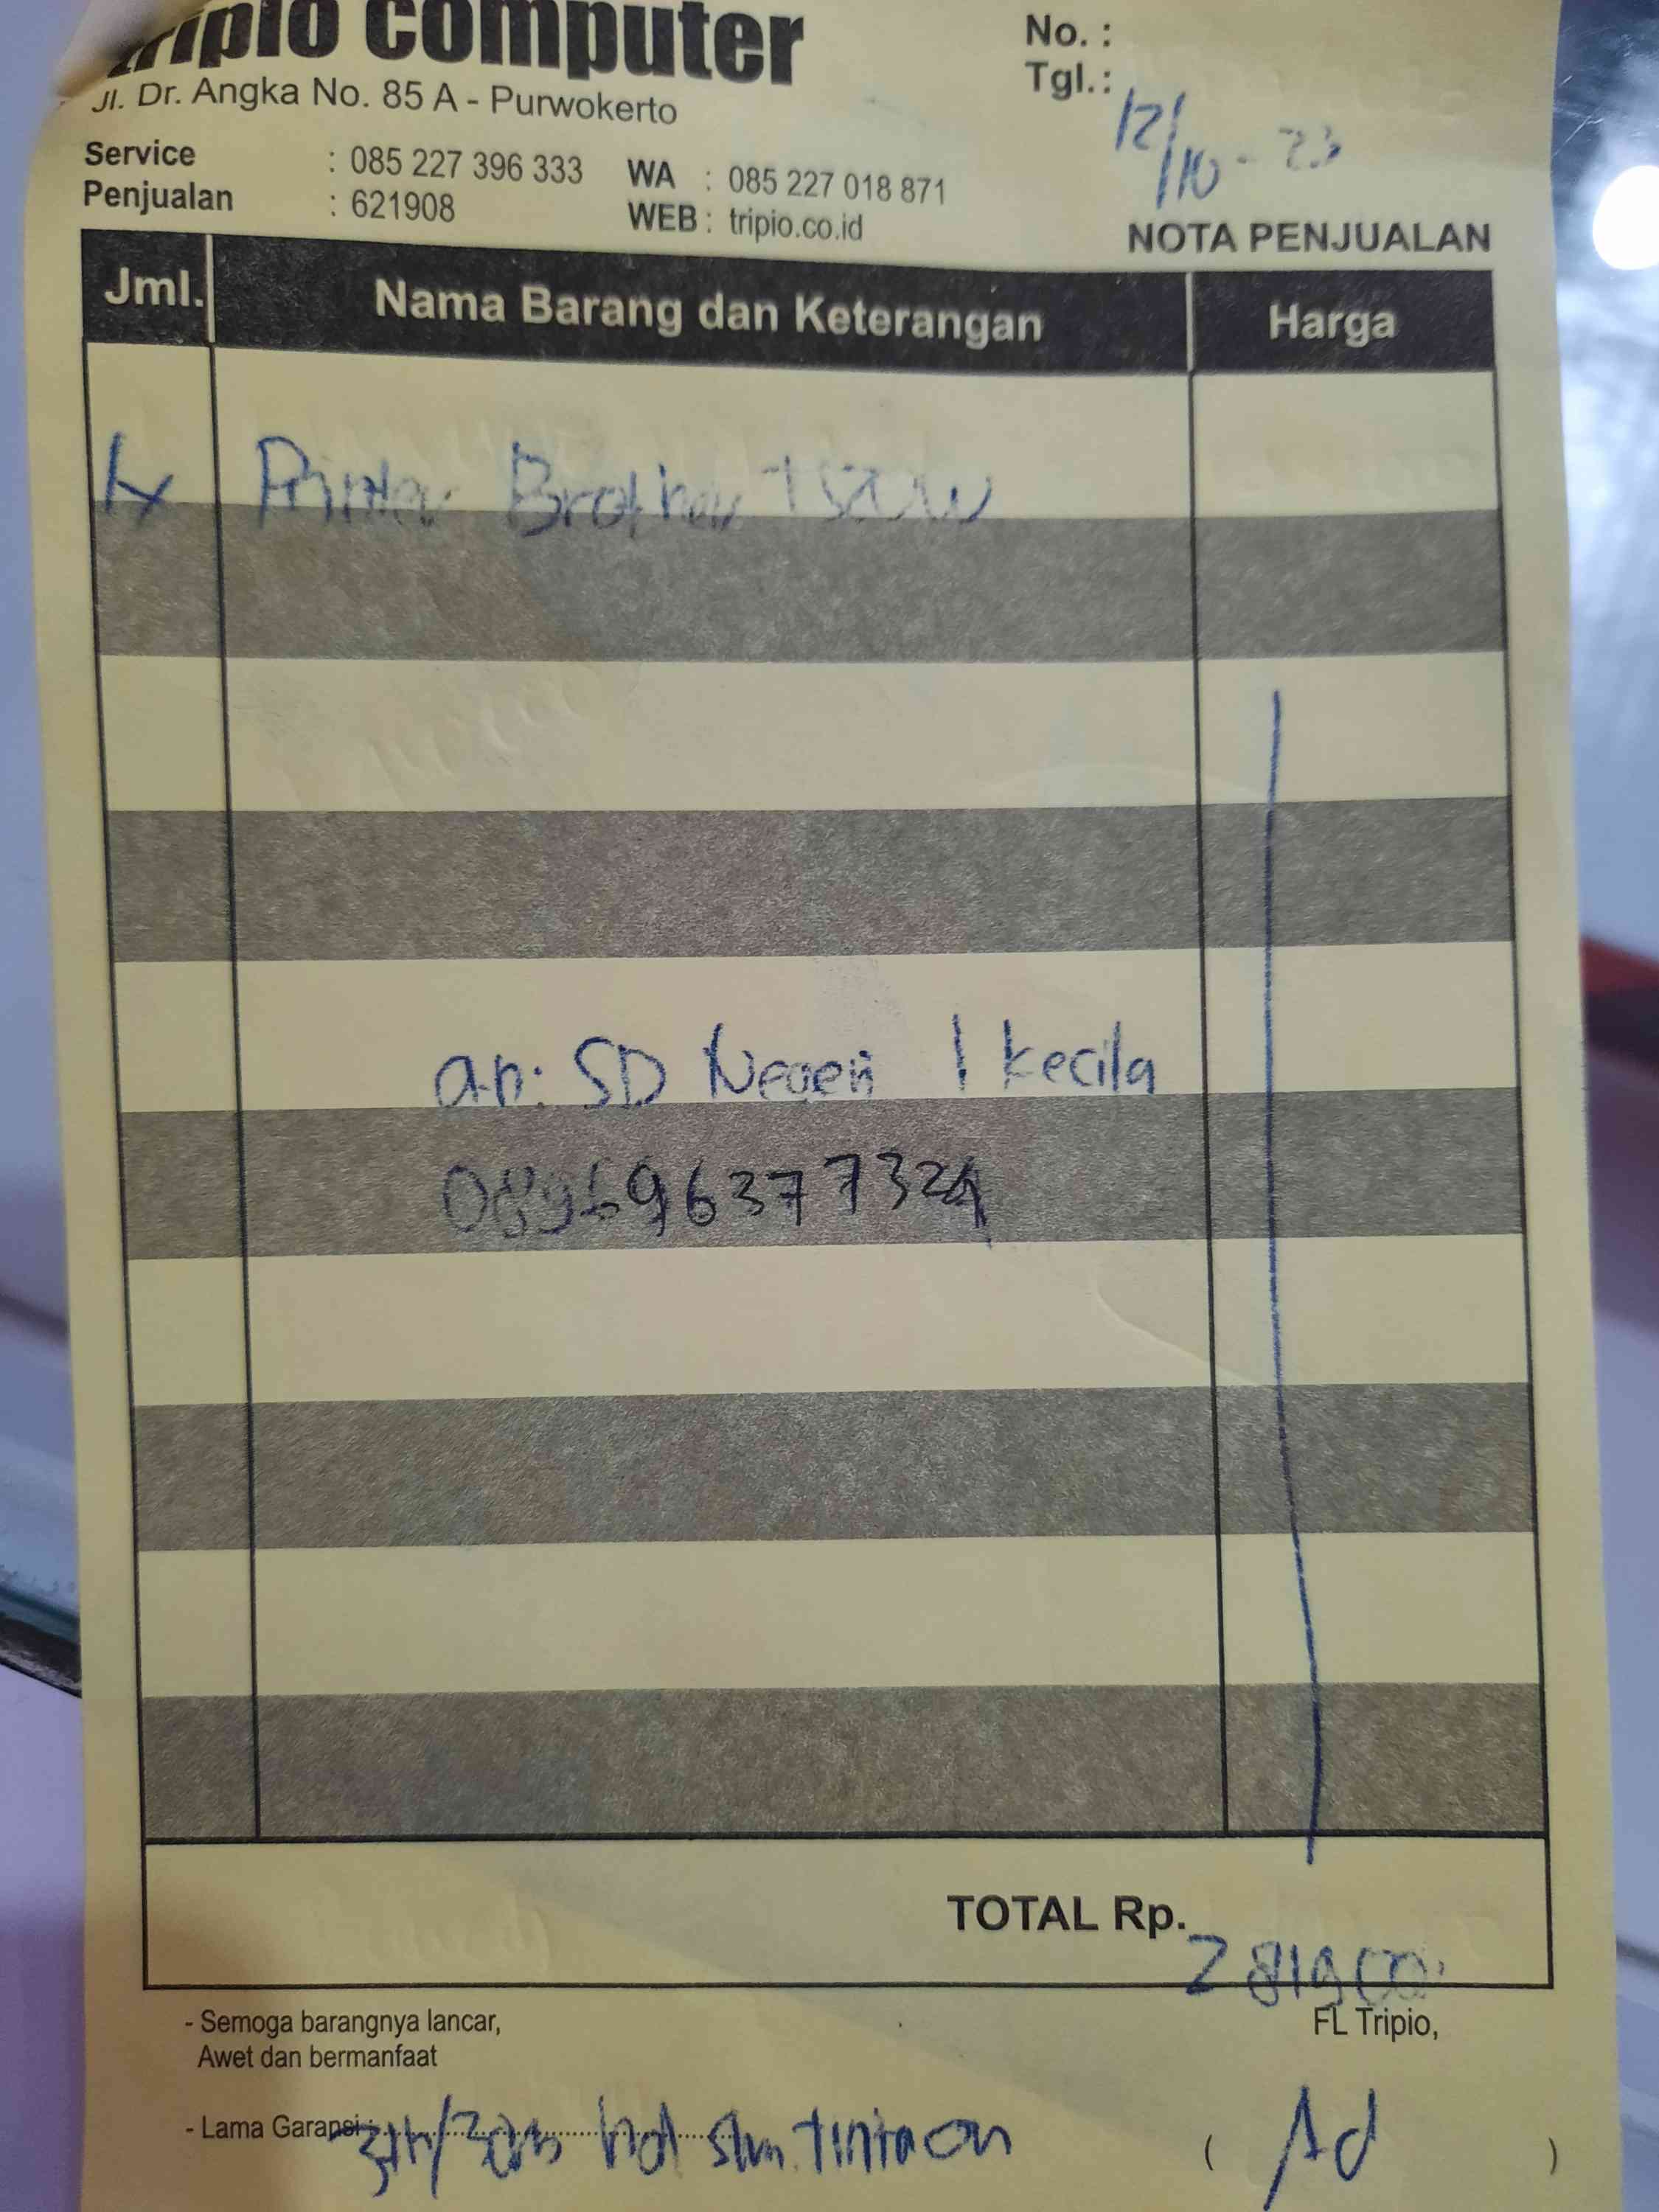 tripio computer
Jl. Dr. Angka No. 85 A - Purwokerto
No. :
Tgl.: 12/10-23
Service : 085 227 396 333 WA : 085 227 018 871
Penjualan : 621908 WEB : tripio.co.id
NOTA PENJUALAN
Jml. Nama Barang dan Keterangan Harga
1x Printer Brother
an: SD Negeri 1 Kecila
089696377324
TOTAL Rp. 2819000
FL Tripio,
- Semoga barangnya lancar,
Awet dan bermanfaat
- Lama Garansi :
( Ad )